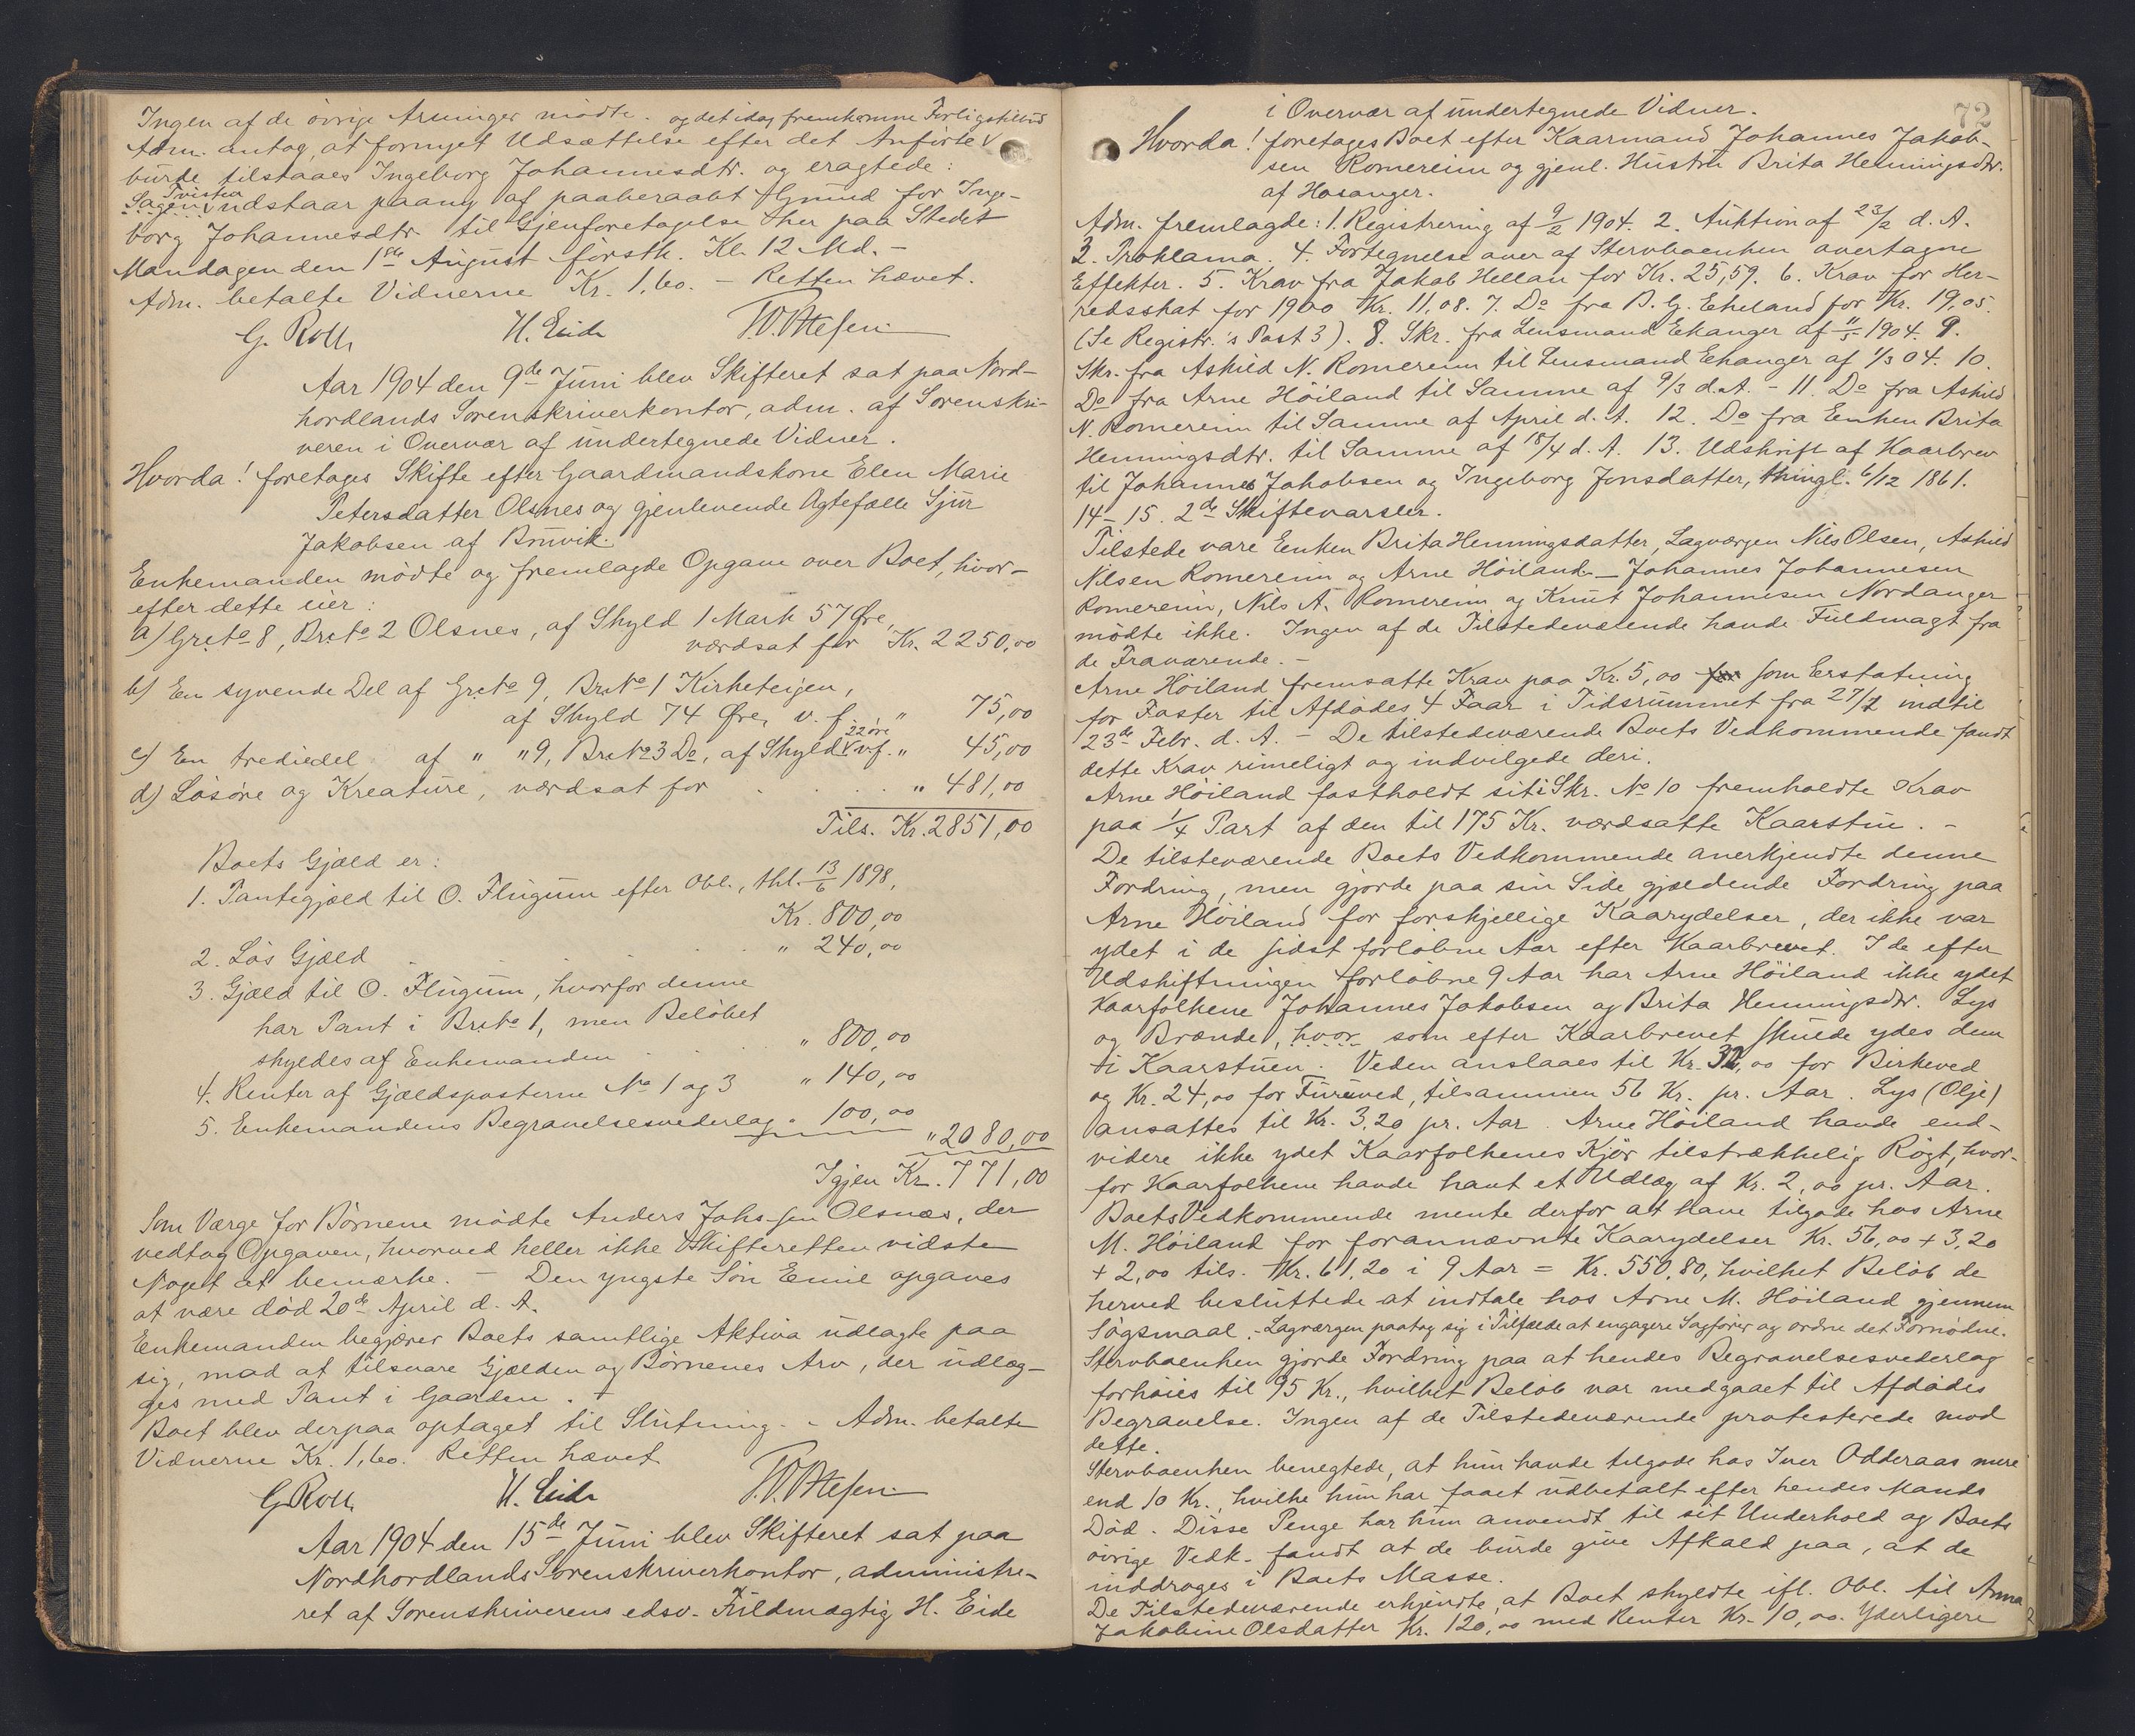 Ingen af de övrige Arvinger mödte. og det idag fremkomne Forligstilbud
Adm. antog, at fornyet Udsættelse efter det Anförte √
burde tilstaaes Ingeborg Johannesdtr. og eragtede:
Tvisten
Sagen √ udstaar paany af paaberaabt Grund for Inge-
borg Johannesdtr til Gjenforetagelse her paa Stedet
Mandagen den 1ste August förstk. Kl. 12 Md. -
Adm. betalte Vidnerne Kr. 1,60. - Retten hævet.
G. Roll H. Eide
Aar 1904 den 9de Juni blev Skifteret sat paa Nord-
hordlands Sorenskriverkontor, adm. af Sorenskri-
veren i Overvær af undertegnede Vidner.
Hvorda! foretages Skifte efter Gaardmandskone Elen Marie
Petersdatter Olsnes og gjenlevende Ægtefælle Sjur
Jakobsen af Bruvik.
Enkemanden mödte og fremlagde Opgave over Boet, hvor-
efter dette eier:
a) Gr.No 8, Br.No 2 Olsnes, af Skyld 1 Mark 57 Øre,
værdsat for Kr. 2250,00
b) En syvende Del af Gr.No 9, Br.No 1 Kirketeigen,
af Skyld 74 Øre, v. f. " 75,00
22 öre
c) En trediedel af " " 9, Br.No 3 Do, af Skyld √ v.f. " 45,00
d) Lösöre og Kreature, værdsat for . . . " 481,00
Tils. Kr. 2851,00
Boets Gjæld er:
1. Pantegjæld til O. Flugum efter Obl., thl. 13/6 1898,
Kr. 800,00
2. Lös Gjæld . . . . " 240,00
3. Gjæld til O. Flugum, hvorfor denne
har Pant i Br.No 1, men Belöbet
skyldes af Enkemanden . . " 800,00
4. Renter af Gjældsposterne No 1 og 3 " 140,00
5. Enkemandens Begravelsesvederlag " 100,00
" 2080,00
Igjen Kr. 771,00
Som Værge for Börnene mödte Anders Johs.sen Olsnæs, der
vedtog Opgaven, hvorved heller ikke Skifteretten vidste
Noget at bemærke. - Den yngste Sön Emil opgaves
at være död 20de April d. A.
Enkemanden begjærer Boets samtlige Aktiva udlagte paa
sig, mod at tilsvare Gjælden og Börnenes Arv, der udlæg-
ges med Pant i Gaarden. -
Boet blev derpaa optaget til Slutning. - Adm. betalte
Vidnerne Kr. 1,60. Retten hævet
G. Roll H. Eide
Aar 1904 den 15de Juni blev Skifteret sat paa
Nordhordlands Sorenskriverkontor, administre-
ret af Sorenskriverens edsv. Fuldmægtig H. Eide
72
i Overvær af undertegnede Vidner.
Hvorda! foretages Boet efter Kaarmand Johannes Jakob-
sen Romereim og gjenl. Hustru Brita Henningsdtr.
af Hosanger.
Adm. fremlagde: 1. Registrering af 9/2 1904. 2. Auktion af 23/2 d. A.
3. Proklama. 4. Fortegnelse over af Stervboenken overtagne
Effekter. 5. Krav fra Jakob Hellan for Kr. 25,59. 6. Krav for Her-
redsskat for 1900 Kr. 11,08. 7. Do fra B. G. Eheland for Kr. 19,05.
(Se Registr.'s Post 3). 8. Skr. fra Lensmand Ekanger af 11/5 1904. 9.
Skr. fra Askild N. Romereim til Lensmand Ekanger af 1/3 04. 10.
Do fra Arne Höiland til Samme af 9/3 d.A. - 11. Do fra Askild
N. Romereim til Samme af April d. A. 12. Do fra Enken Brita
Henningsdtr. til Samme af 18/4 d. A. 13. Udskrift af Kaarbrev
til Johannes Jakobsen og Ingeborg Jonsdatter, thingl. 6/12 1861.
14-15. 2de Skiftevarsler.
Tilstede vare Enken Brita Henningsdatter, Lagværgen Nils Olsen, Askild
Nilsen Romereim og Arne Höiland. - Johannes Johannesen
Romereim, Nils A. Romereim og Knut Johannesen Nordanger
mödte ikke. Ingen af de Tilstedeværende havde Fuldmagt fra
de Fraværende. -
Arne Höiland fremsatte Krav paa Kr. 5,00 for som Erstatning
for Foster til Afdödes 4 Faar i Tidsrummet fra 27/1 indtil
23de Febr. d. A. - De tilstedeværende Boets Vedkommende fandt
dette Krav rimeligt og indvilgede deri.
Arne Höiland fastholdt sit i Skr. No 10 fremholdte Krav
paa 1/4 Part af den til 175 Kr. værdsatte Kaarstue. -
De tilsteværende Boets Vedkommende anerkjendte denne
Fordring, men gjorde paa sin Side gjældende Fordring paa
Arne Höiland for forskjellige Kaarydelser, der ikke var
ydet i de sidst forlöbne Aar efter Kaarbrevet. I de efter
Udskiftningen forlöbne 9 Aar har Arne Höiland ikke ydet
Kaarfolkene Johannes Jakobsen og Brita Henningsdtr. Lys
og Brænde, hvor som efter Kaarbrevet skulde ydes dem
i Kaarstuen. Veden anslaaes til Kr. 32,00 for Birkeved
og Kr. 24,00 for Furuved, tilsammen 56 Kr. pr. Aar. Lys (Olje)
ansattes til Kr. 3,20 pr. Aar. Arne Höiland havde end-
videre ikke ydet Kaarfolkenes Kjör tilstrækkelig Rögt, hvor-
for Kaarfolkene havde havt et Udlæg af Kr. 2,00 pr. Aar.
Boets Vedkommende mente derfor at have tilgode hos Arne
M. Höiland for forannævnte Kaarydelser Kr. 56,00 + 3,20
+ 2,00 tils. Kr. 61,20 i 9 Aar = Kr. 550,80, hvilket Belöb de
herved besluttede at indtale hos Arne M. Höiland gjennem
Sögsmaal. - Lagværgen paatog sig i Tilfælde at engagere Sagförer og ordne det Fornödne.
Stervboenken gjorde Fordring paa at hendes Begravelsesvederlag
forhöies til 95 Kr., hvilket Belöb var medgaaet til Afdödes
Begravelse. Ingen af de Tilstedeværende protesterede mod
dette.
Stervboenken benegtede, at hun havde tilgode hos Iver Odderaas mere
end 10 Kr., hvilke hun har faaet udbetalt efter hendes Mands
Död. Disse Penge har hun anvendt til sit Underhold og Boets
övrige Vedk. fandt at de burde give Afkald paa, at de
inddroges i Boets Masse.
De Tilstedeværende erkjendte, at Boet skyldte ifl. Obl. til Anna
Jakobine Olsdatter Kr. 120,00 med Renter Kr. 10,00. Yderligere